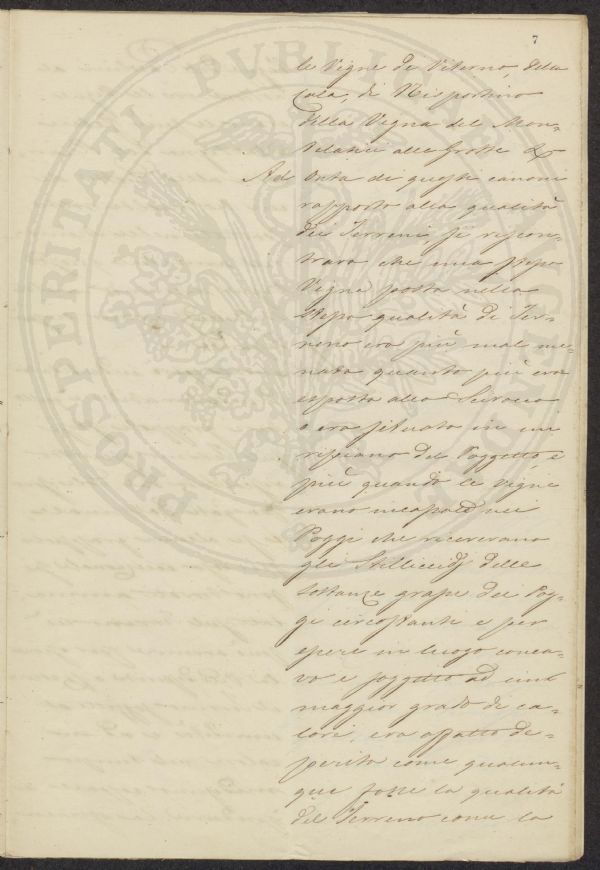 7
le Vigne di Viterno, della
Cala, di Nisportino
della Vigna del Mon-
alle Grotte &
Ad Onta di questi canoni
rapporto alla qualità
dei Terreni, si riscon-
trava che una stessa
Vigna posta nella
stessa qualità di Ter-
reno era più mal me-
nata quanto più era
esposta allo Scirocco
o era situata in un
ripiano del Poggetto, e
più quando le Vigne
erano nei
Poggi che ricevevano
gli Stillicidj delle
sostanze grasse dei Pog-
gi circostanti e per
essere in luogo conca-
vo e soggetto ad un
maggior grado di ca-
lore, era affatto de-
perita come qualun-
que fosse la qualità
del Terreno come la
PROSPERITATI PUBLICAE AUGENDAE